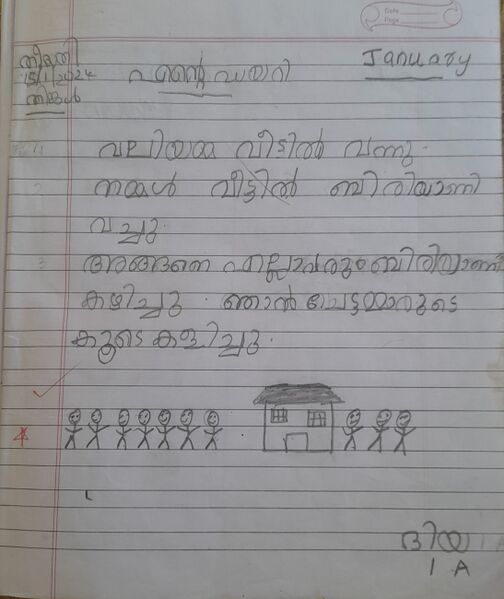 തീയതി
15/1/2024
തിങ്കൾ
എന്റെ ഡയറി
January
Date
Page
1 വലിയമ്മ വീട്ടിൽ വന്നു.
2 നമ്മൾ വീട്ടിൽ ബിരിയാണി
വച്ചു.
3 അങ്ങനെ എല്ലാവരും ബിരിയാണി
കഴിച്ചു. ഞാൻ ചേട്ടന്മാരുടെ
കൂടെ കളിച്ചു.
ദിയ
I A